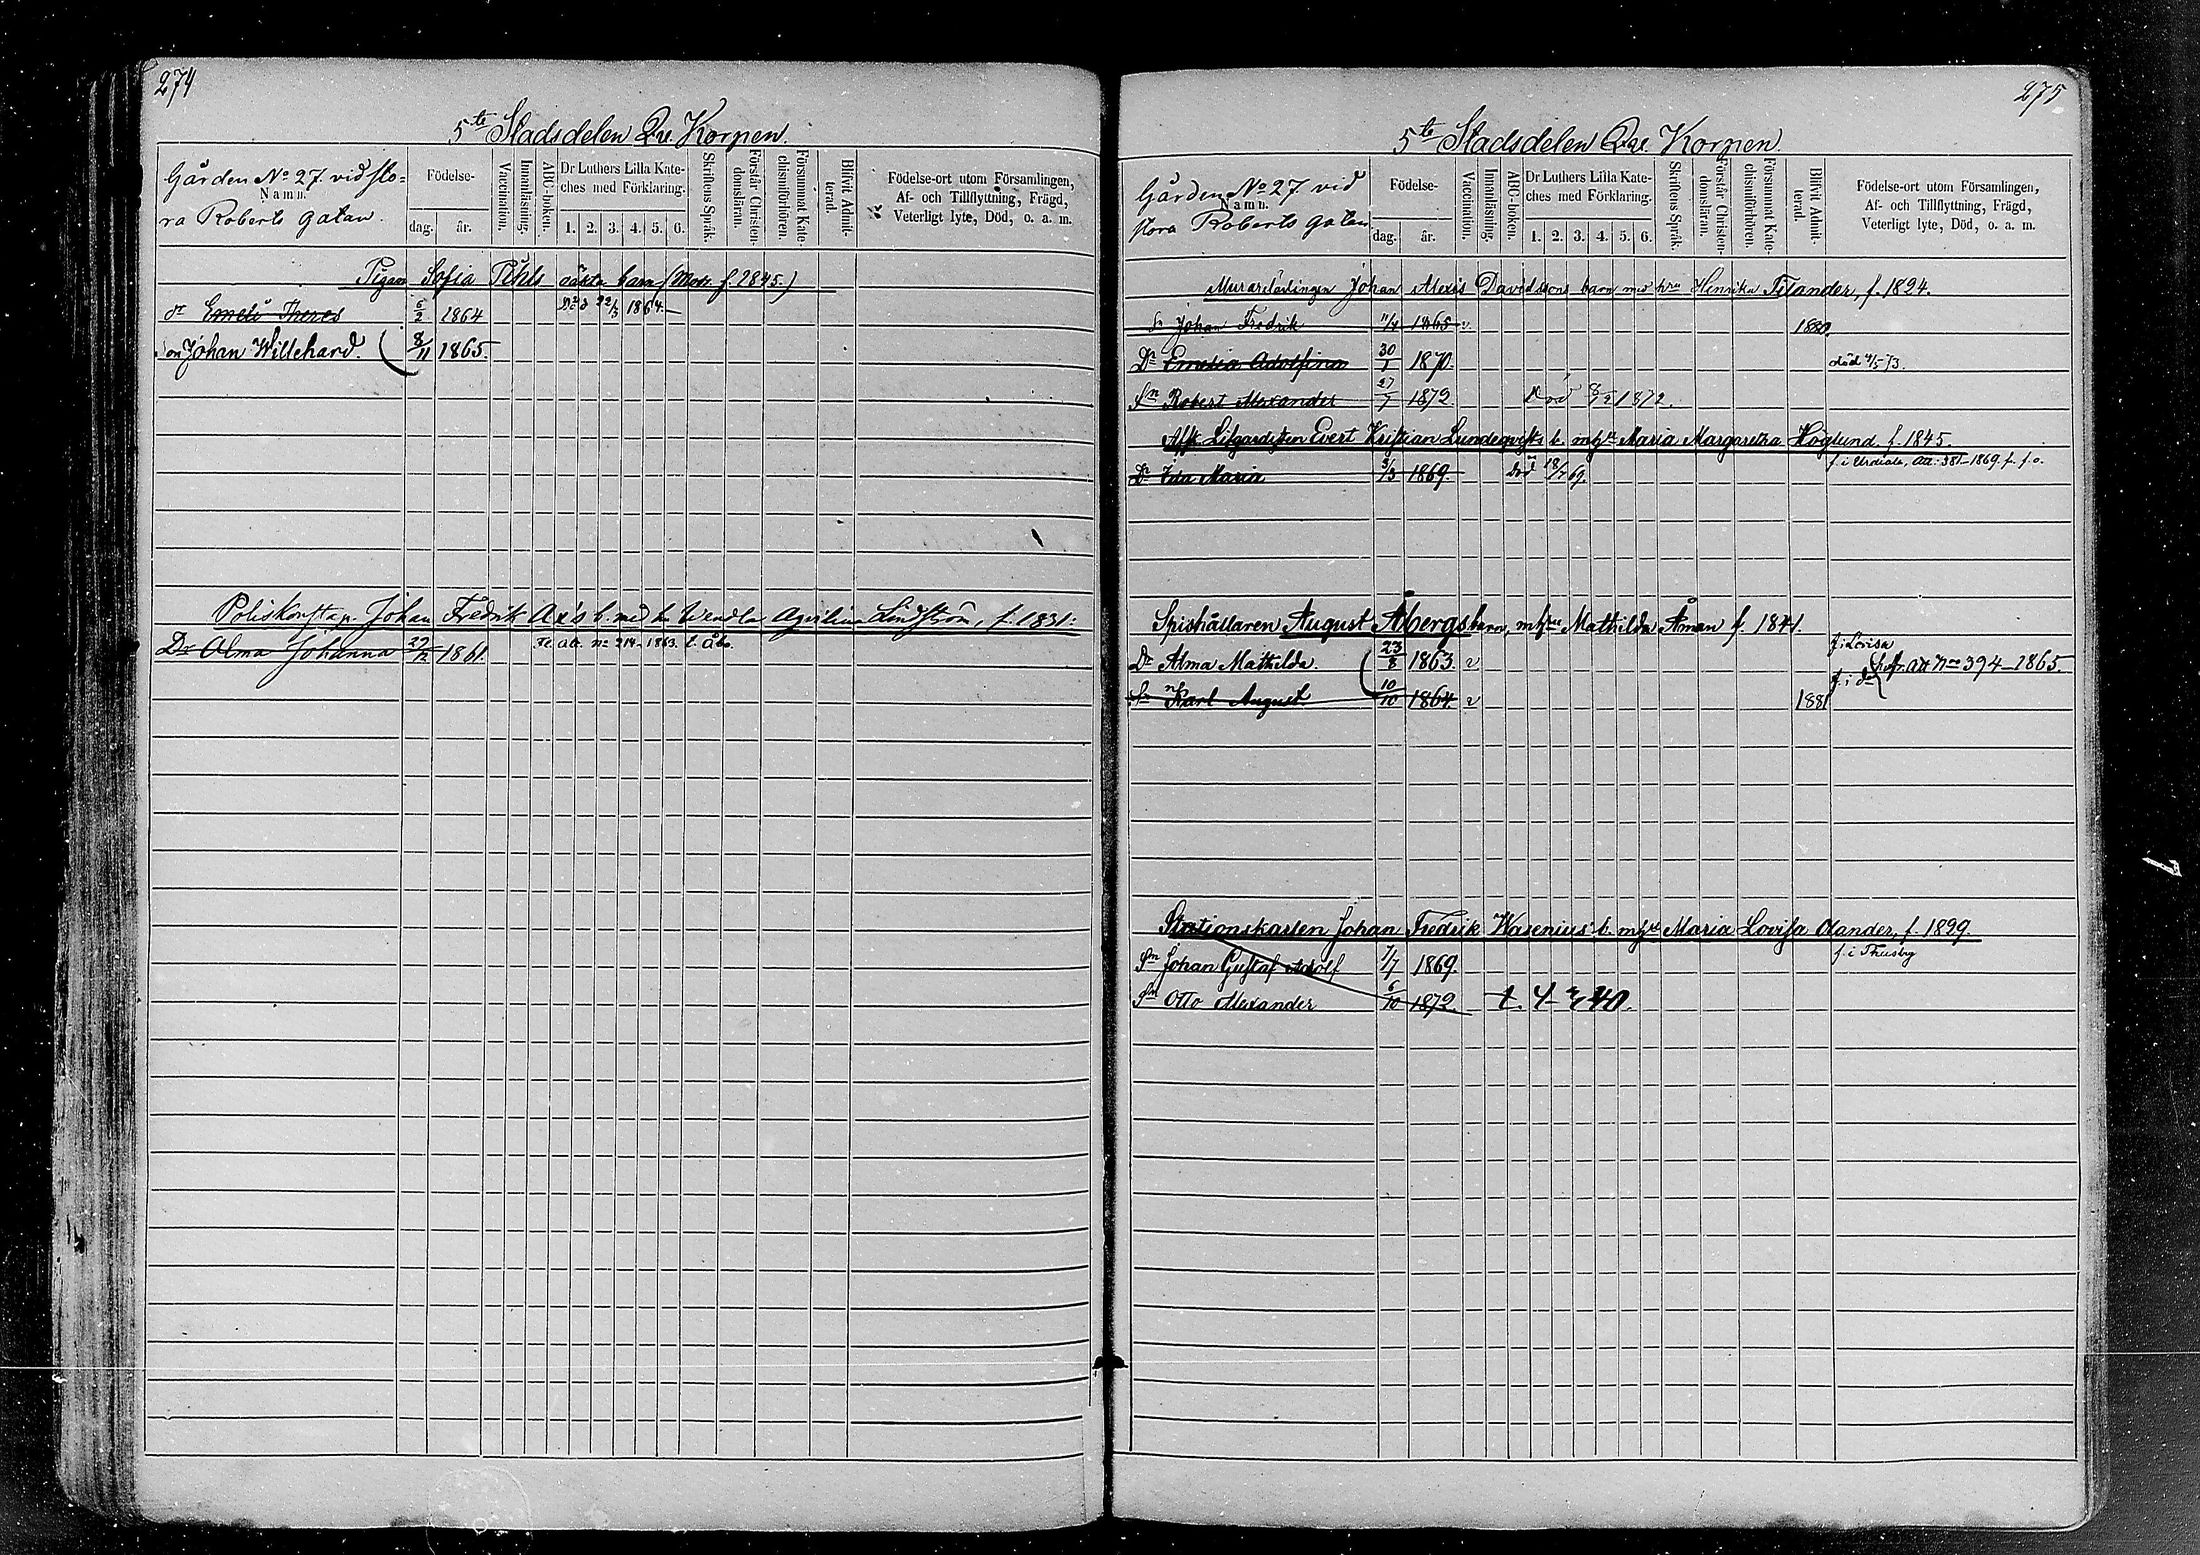 274
5te Stadsdelen Qu. Korpen.
Gården No 27 vid sto-
Namn.
ra Roberts gatan.
Födelse-
dag. år.
Vaccination.
Innanläsning.
ABC-boken.
Dr Luthers Lilla Kate-
ches med Förklaring.
1. 2. 3. 4. 5. 6.
Skriftens Språk.
Förstår Christen-
domsläran.
Försummat Kate-
chismiförhören.
Blifvit Admit-
terad.
Födelse-ort utom Församlingen,
Af- och Tillflyttning, Frägd,
Veterligt lyte, Död, o. a. m.
Pigan Sofia Pihls oäkta barn (Mod. f. 1845.)
dr Emeli Theres 5/2 1864 Död 22/3 1864.
Son Johan Willehard. 8/11 1865
Poliskonstap. Johan Fredrik Ax's b. med h. Wendla Lindström, f. 1831.
Dr Alma Johanna 27/12 1861. Fl. att. no 214-1863. t. Åbo.
275
5te Stadsdelen Qu. Korpen.
Gården No 27 vid
Namn.
stora Roberts gatan
Födelse-
dag. år.
Vaccination.
Innanläsning.
ABC-boken.
Dr Luthers Lilla Kate-
ches med Förklaring.
1. 2. 3. 4. 5. 6.
Skriftens Språk.
Förstår Christen-
domsläran.
Försummat Kate-
chismiförhören.
Blifvit Admit-
terad.
Födelse-ort utom Församlingen,
Af- och Tillflyttning, Frägd,
Veterligt lyte, Död, o. a. m.
Murarelärlingen Johan Alexis Davidssons barn med hru Henrika Titander, f. 1824.
Sn Johan Fredrik 11/4 1865 v. 1880.
Dr Emelia Adolfina 30/1 1870. död 4/5 73.
Sn Robert Alexander 27/7 1872 Död 8/12 1872.
Afsk. Lifgardisten Evert Kristian Lundeqvists b. mhru Maria Margaretha Höglund f. 1845.
f. i Urdiala, att. 381-1869. f. f. o.
Dr Ida Maria 3/3 1869. död 18/7 69.
Spishållaren August Åbergs barn, mhru Mathilda Åman f. 1841.
f. i Lovisa
Dr Alma Mathilda. 23/8 1863. v att No 394-1865.
f. i do
Sn Karl August 10/10 1864. v 1881
Stationskarlen Johan Fredrik Wasenius' b. mhru Maria Lovisa Olander, f. 1829.
f. i Thusby
Sn Johan Gustaf Adolf 1/7 1869.
Sn Otto Alexander 6/10 1872.